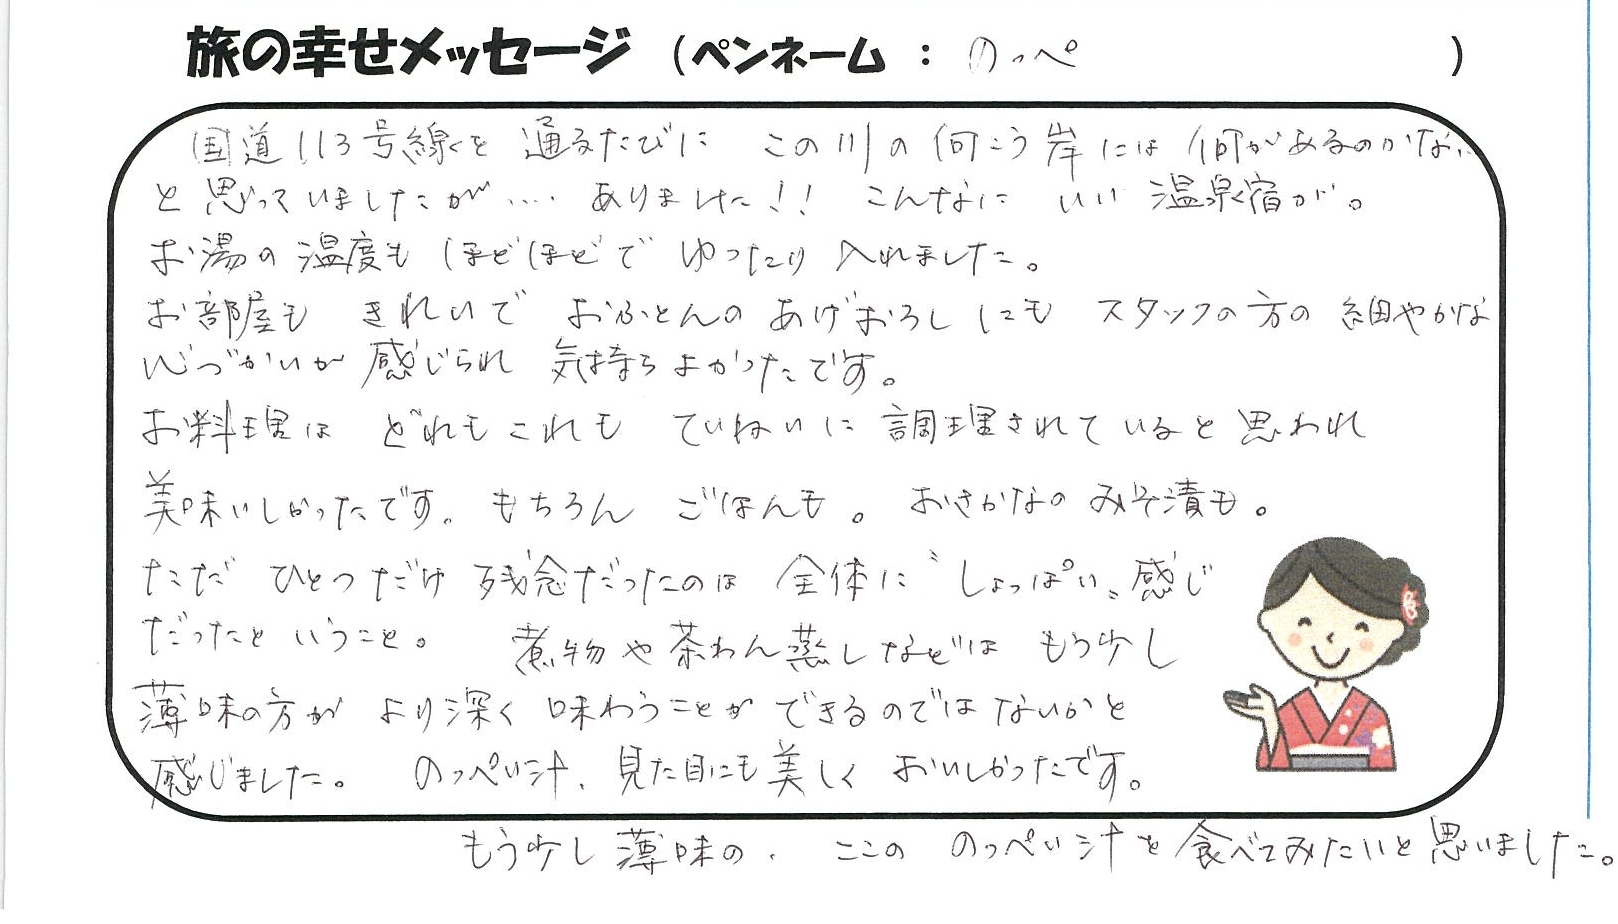 旅の幸せメッセージ (ペンネーム : のっぺ )
国道113号線を 通るたびに この川の向こう岸には 何があるのかな…
と思っていましたが…. ありました!! こんなに いい 温泉宿が。
お湯の温度も ほどほどで ゆったり 入れました。
お部屋も きれいで おふとんの あげおろしにも スタッフの方の 細やかな
心づかいが 感じられ 気持ちよかったです。
お料理は どれもこれも ていねいに調理されていると思われ
美味いしかったです。もちろん ごはんも。 おさかなの みそ漬も。
ただ ひとつだけ 残念だったのは 全体に〝しょっぱい〟感じ
だったということ。 煮物や茶わん蒸しなどは もう少し
薄味の方が より深く 味わうことが できるのではないかと
感じました。 のっぺい汁、見た目にも美しく おいしかったです。
もう少し薄味の、 ここの のっぺい汁を食べてみたいと思いました。